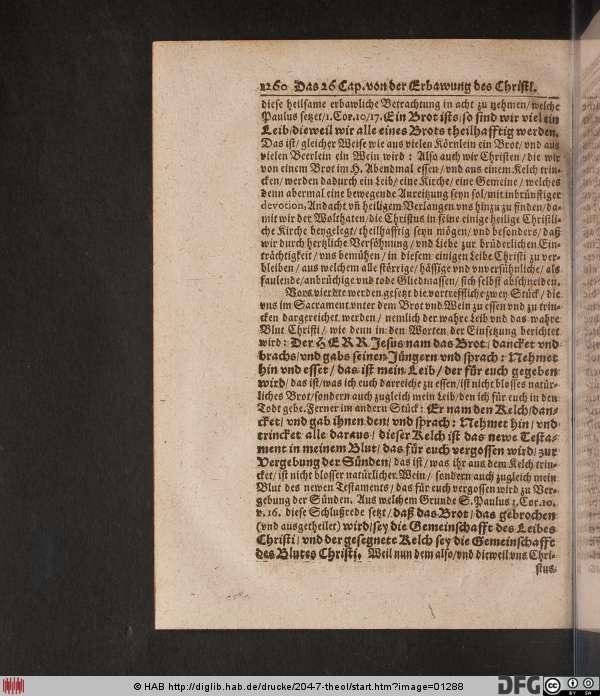 1260 Das 26 Cap. von der Erbawung des Christl.
diese heilsame erbawliche Betrachtung in acht zu nehmen/welche
Paulus setzet/1. Cor. 10/17. Ein Brot ists/so sind wir viel ein
Leib/dieweil wir alle eines Brots theilhafftig werden.
Das ist/gleicher Weise wie aus vielen Körnlein ein Brot/vnd aus
vielen Beerlein ein Wein wird: Also auch wir Christen/die wir
von einem Brot im H. Abendmal essen/vnd aus einem Kelch trin-
cken/werden dadurch ein Leib/eine Kirche/eine Gemeine/welches
denn abermal eine bewegende Anreitzung seyn sol/mit inbrünstiger
devotion, Andacht vñ heiligem Verlangen vns hinzu zu finden/da-
mit wir der Wolthaten/die Christus in seine einige heilige Christli-
che Kirche beygelegt/theilhafftig seyn mögen/vnd besonders/daß
wir durch hertzliche Versöhnung/vnd Liebe zur brüderlichen Ein-
trächtigkeit/vns bemühen/in diesem einigen Leibe Christi zu ver-
bleiben/aus welchem alle störrige/hässige vnd vnversühnliche/als
faulende/anbrüchige vnd tode Gliedmassen/sich selbst abschneiden.
Vors vierdte werden gesetzt die vortreffliche zwey Stück/die
vns im Sacrament vnter dem Brot vnd Wein zu essen vnd zu trin-
cken dargereichet werden/nemlich der wahre Leib vnd das wahre
Blut Christi/wie denn in den Worten der Einsetzung berichtet
wird: Der HERR Jesus nam das Brot/dancket vnd
brachs/vnd gabs seinen Jüngern vnd sprach: Nehmet
hin vnd esset/das ist mein Leib/der für euch gegeben
wird/das ist/was ich euch darreiche zu essen/ist nicht blosses natür-
liches Brot/sondern auch zugleich mein Leib/den ich für euch in den
Todt gebe. Ferner im andern Stück: Er nam den Kelch/dan-
cket/vnd gab ihnen den/vnd sprach: Nehmet hin/vnd
trincket alle daraus/dieser Kelch ist das newe Testa-
ment in meinem Blut/das für euch vergossen wird/zur
Vergebung der Sünden/das ist/was ihr aus dem Kelch trin-
cket/ist nicht blosser natürlicher Wein/sondern auch zugleich mein
Blut des newen Testaments/das für euch vergossen wird zu Ver-
gebung der Sünden. Aus welchem Grunde S. Paulus 1. Cor. 10.
v. 16. diese Schlußrede setzt/daß das Brot/das gebrochen
(vnd ausgetheilet) wird/sey die Gemeinschafft des Leibes
Christi/vnd der gesegnete Kelch sey die Gemeinschafft
des Blutes Christi. Weil nun dem also/vnd dieweil vns Chri-
stus
© HAB http://diglib.hab.de/drucke/204-7-theol/start.htm?image=01288
DFG
cc BY SA